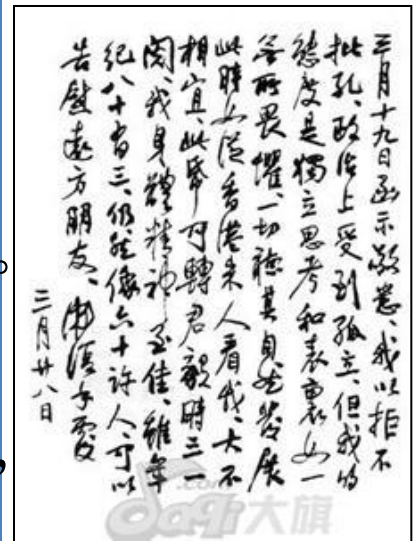 三月十九日函示敬悉、我以拒不
批孔、政治上受到孤立、但我的
態度是獨立思考和表裏如一
無所畏懼、一切聽其自然發展
此時如從香港來人看我、大不
相宜、此紙可轉君毅時三一
閱、我身體精神至佳、雖年
紀八十有三、仍然像六十許人、可以
告慰遠方朋友、漱溟手覆
三月廿八日
大旗
.com